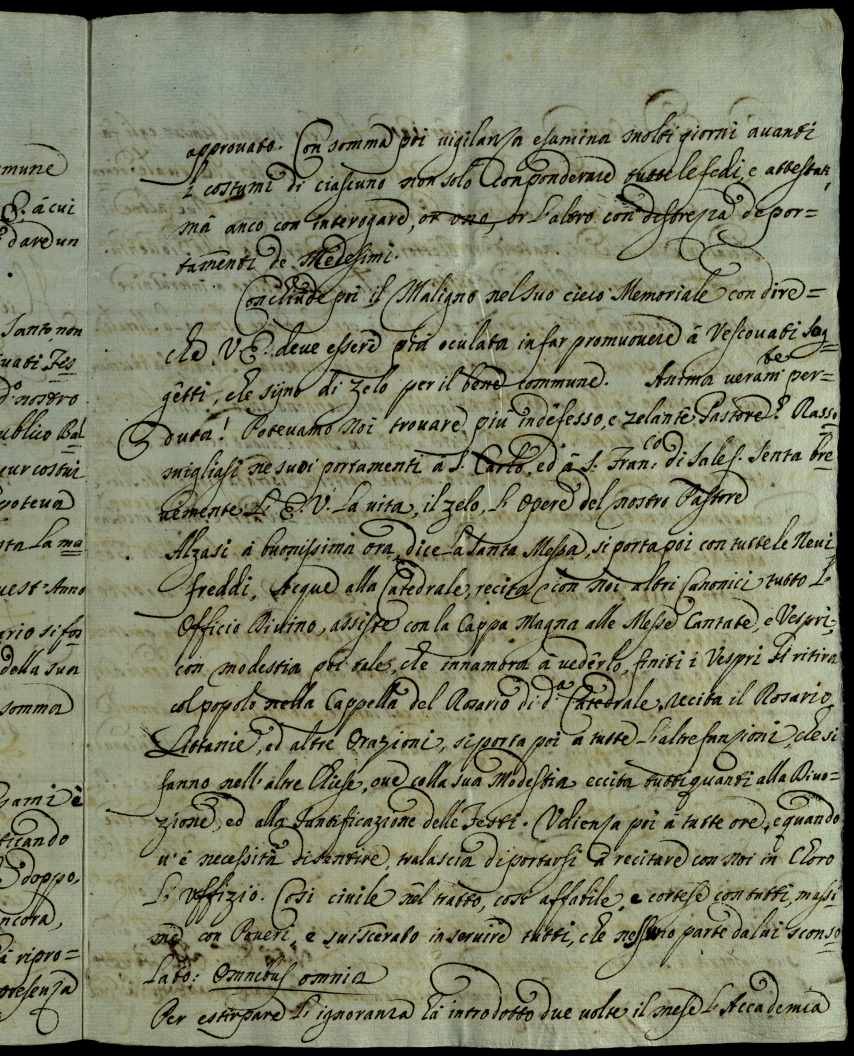 mune
E. á cui
dare un
Santo, non
uati Fes
d.º nostro
ublico Bal
cur costui
poteva
sta La ma
uest' Anno
ario si fos
della sua
somma
sami è
ticando
doppo,
ncora,
à ripro=
presenza
approvato. Con somma poi vigilanza esamina molti giorni avanti
i costumi di ciascuno non solo con ponderare tutte le fedi, e attestati,
mà anco con interogare, or uno, or l'altro con destrezza de por=
tamenti de Medesimi.
Conclude poi il Maligno nel suo cieco Memoriale con dire=
che V. E. deve essere più oculata in far promuovere á Vescovati Sog=
getti, che sijno di zelo per il bene commune. Anima veram.te per=
duta! Potevamo Noi trovare più indefesso, e zelante Pastore? Rasso
migliasi ne suoi portamenti á S. Carlo, ed á S. Fran.co di Sales. Senta bre
vemente L' E. V. La vita, il zelo, L' Opere del nostro Pastore
Alzasi á buonissima ora, dice la Santa Messa, si porta poi con tutte le Nevi
freddi, Acque alla Catedrale, recita con noi altri Canonici tutto L'
Officio Divino, assiste con la Cappa Magna alle Messe Cantate, e Vespri,
con modestia poi tale, che innamora á vederlo, finiti i Vespri si ritira
col popolo nella Cappella del Rosario di d.ª Catedrale, recita il Rosario,
Littanie, ed altre Orazioni, si porta poi a tutte L'altre funzioni, che si
fanno nell'altre Chiese, ove colla sua Modestia eccita tutti quanti alla Divo=
zione, ed alla Santificazione delle Feste. Udienza poi á tutte ore, e quando
v'é necessità di sentire, tralascia di portarsi á recitare con noi in Choro
L' Uffizio. Cosi civile nel tratto, cosi affabile, e cortese con tutti, massi
me con Poveri, e sviscerato in servire tutti, che nessuno parte da lui sconso
Lato: Omnibus omnia
Per estirpare L' ignoranza há introdotto due volte il mese L' Accademia